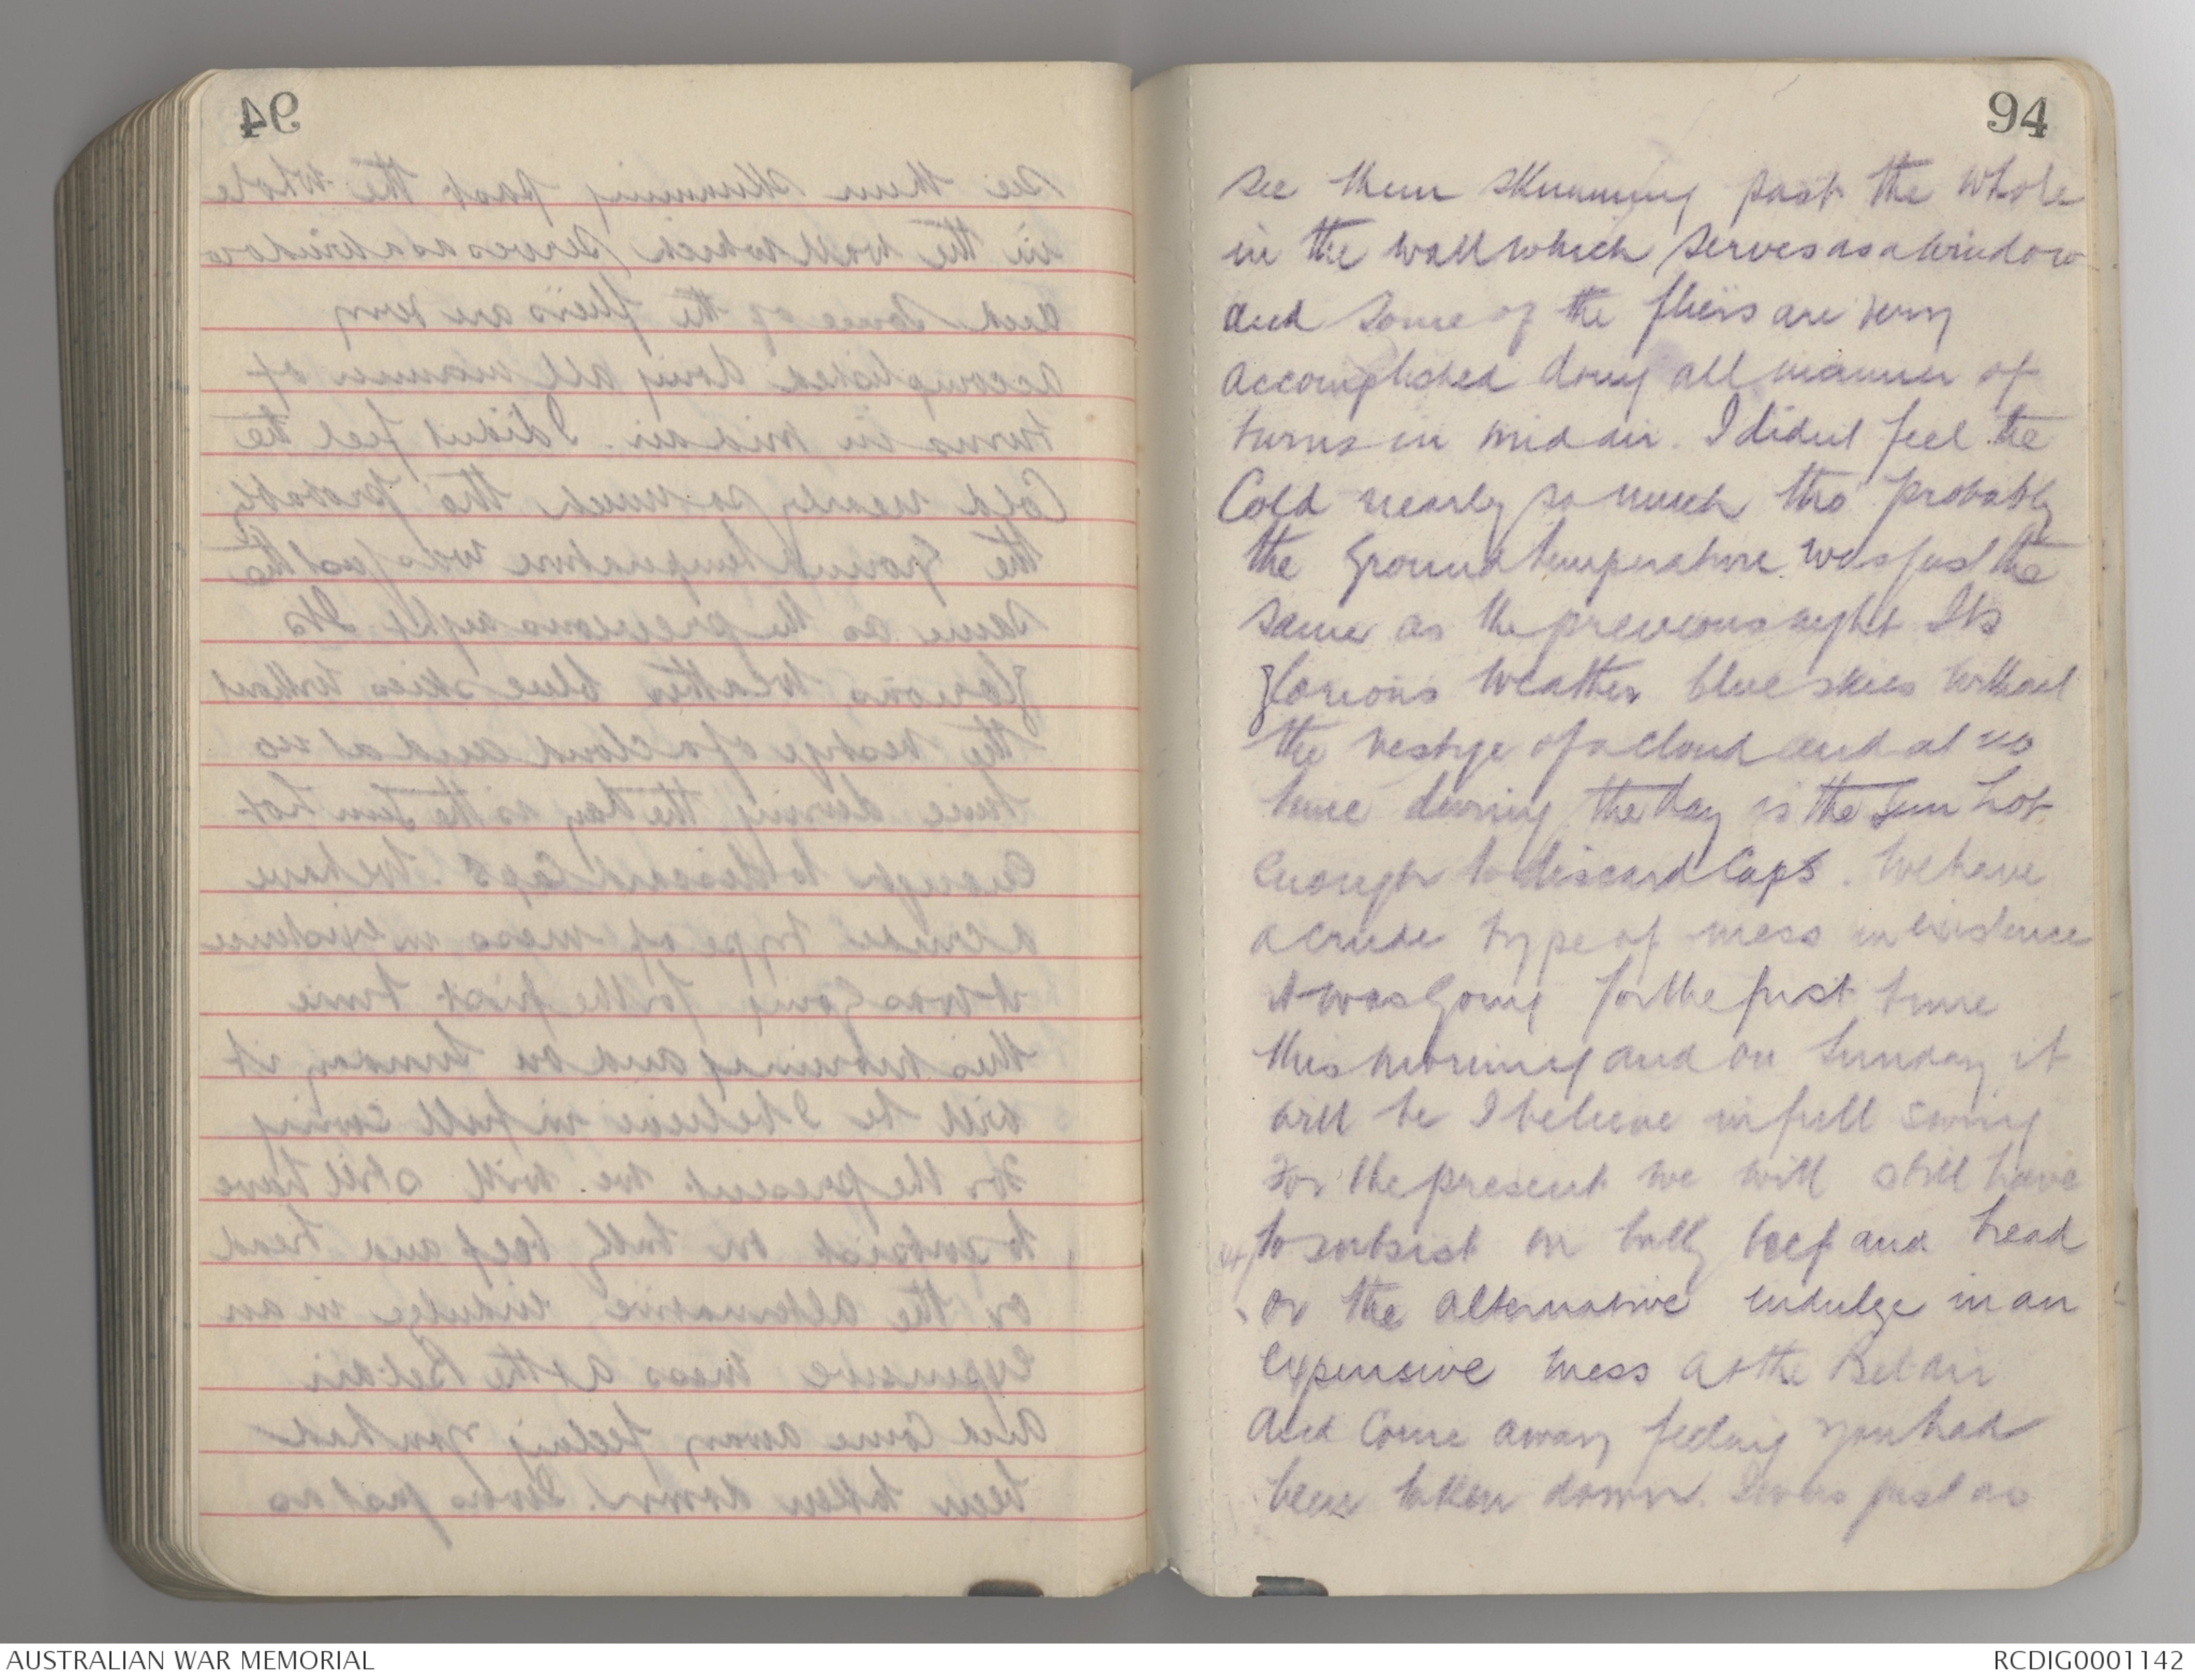 94
see them skimming past the whole
in the wall which serves as a window
and some of the fliers are very
accomplished doing all manner of
turns in mid air. I didnt feel the
Cold nearly so much tho' probably
the ground temperature was just the
same as the previous night Its
glorious weather blue skies without
the vestige of a cloud and at no
time during the day is the sun hot
enough to discard Caps. We have
a crude type of mess in existence
it was going for the first time
this morning and on Sunday it
will be I believe in full swing
For the present we will still have
to subsist on bully beef and bread
or the alternative indulge in an
expensive mess at the Bel air
and come away feeling you had
been taken down. I was just as
AUSTRALIAN WAR MEMORIAL
RCDIG0001142